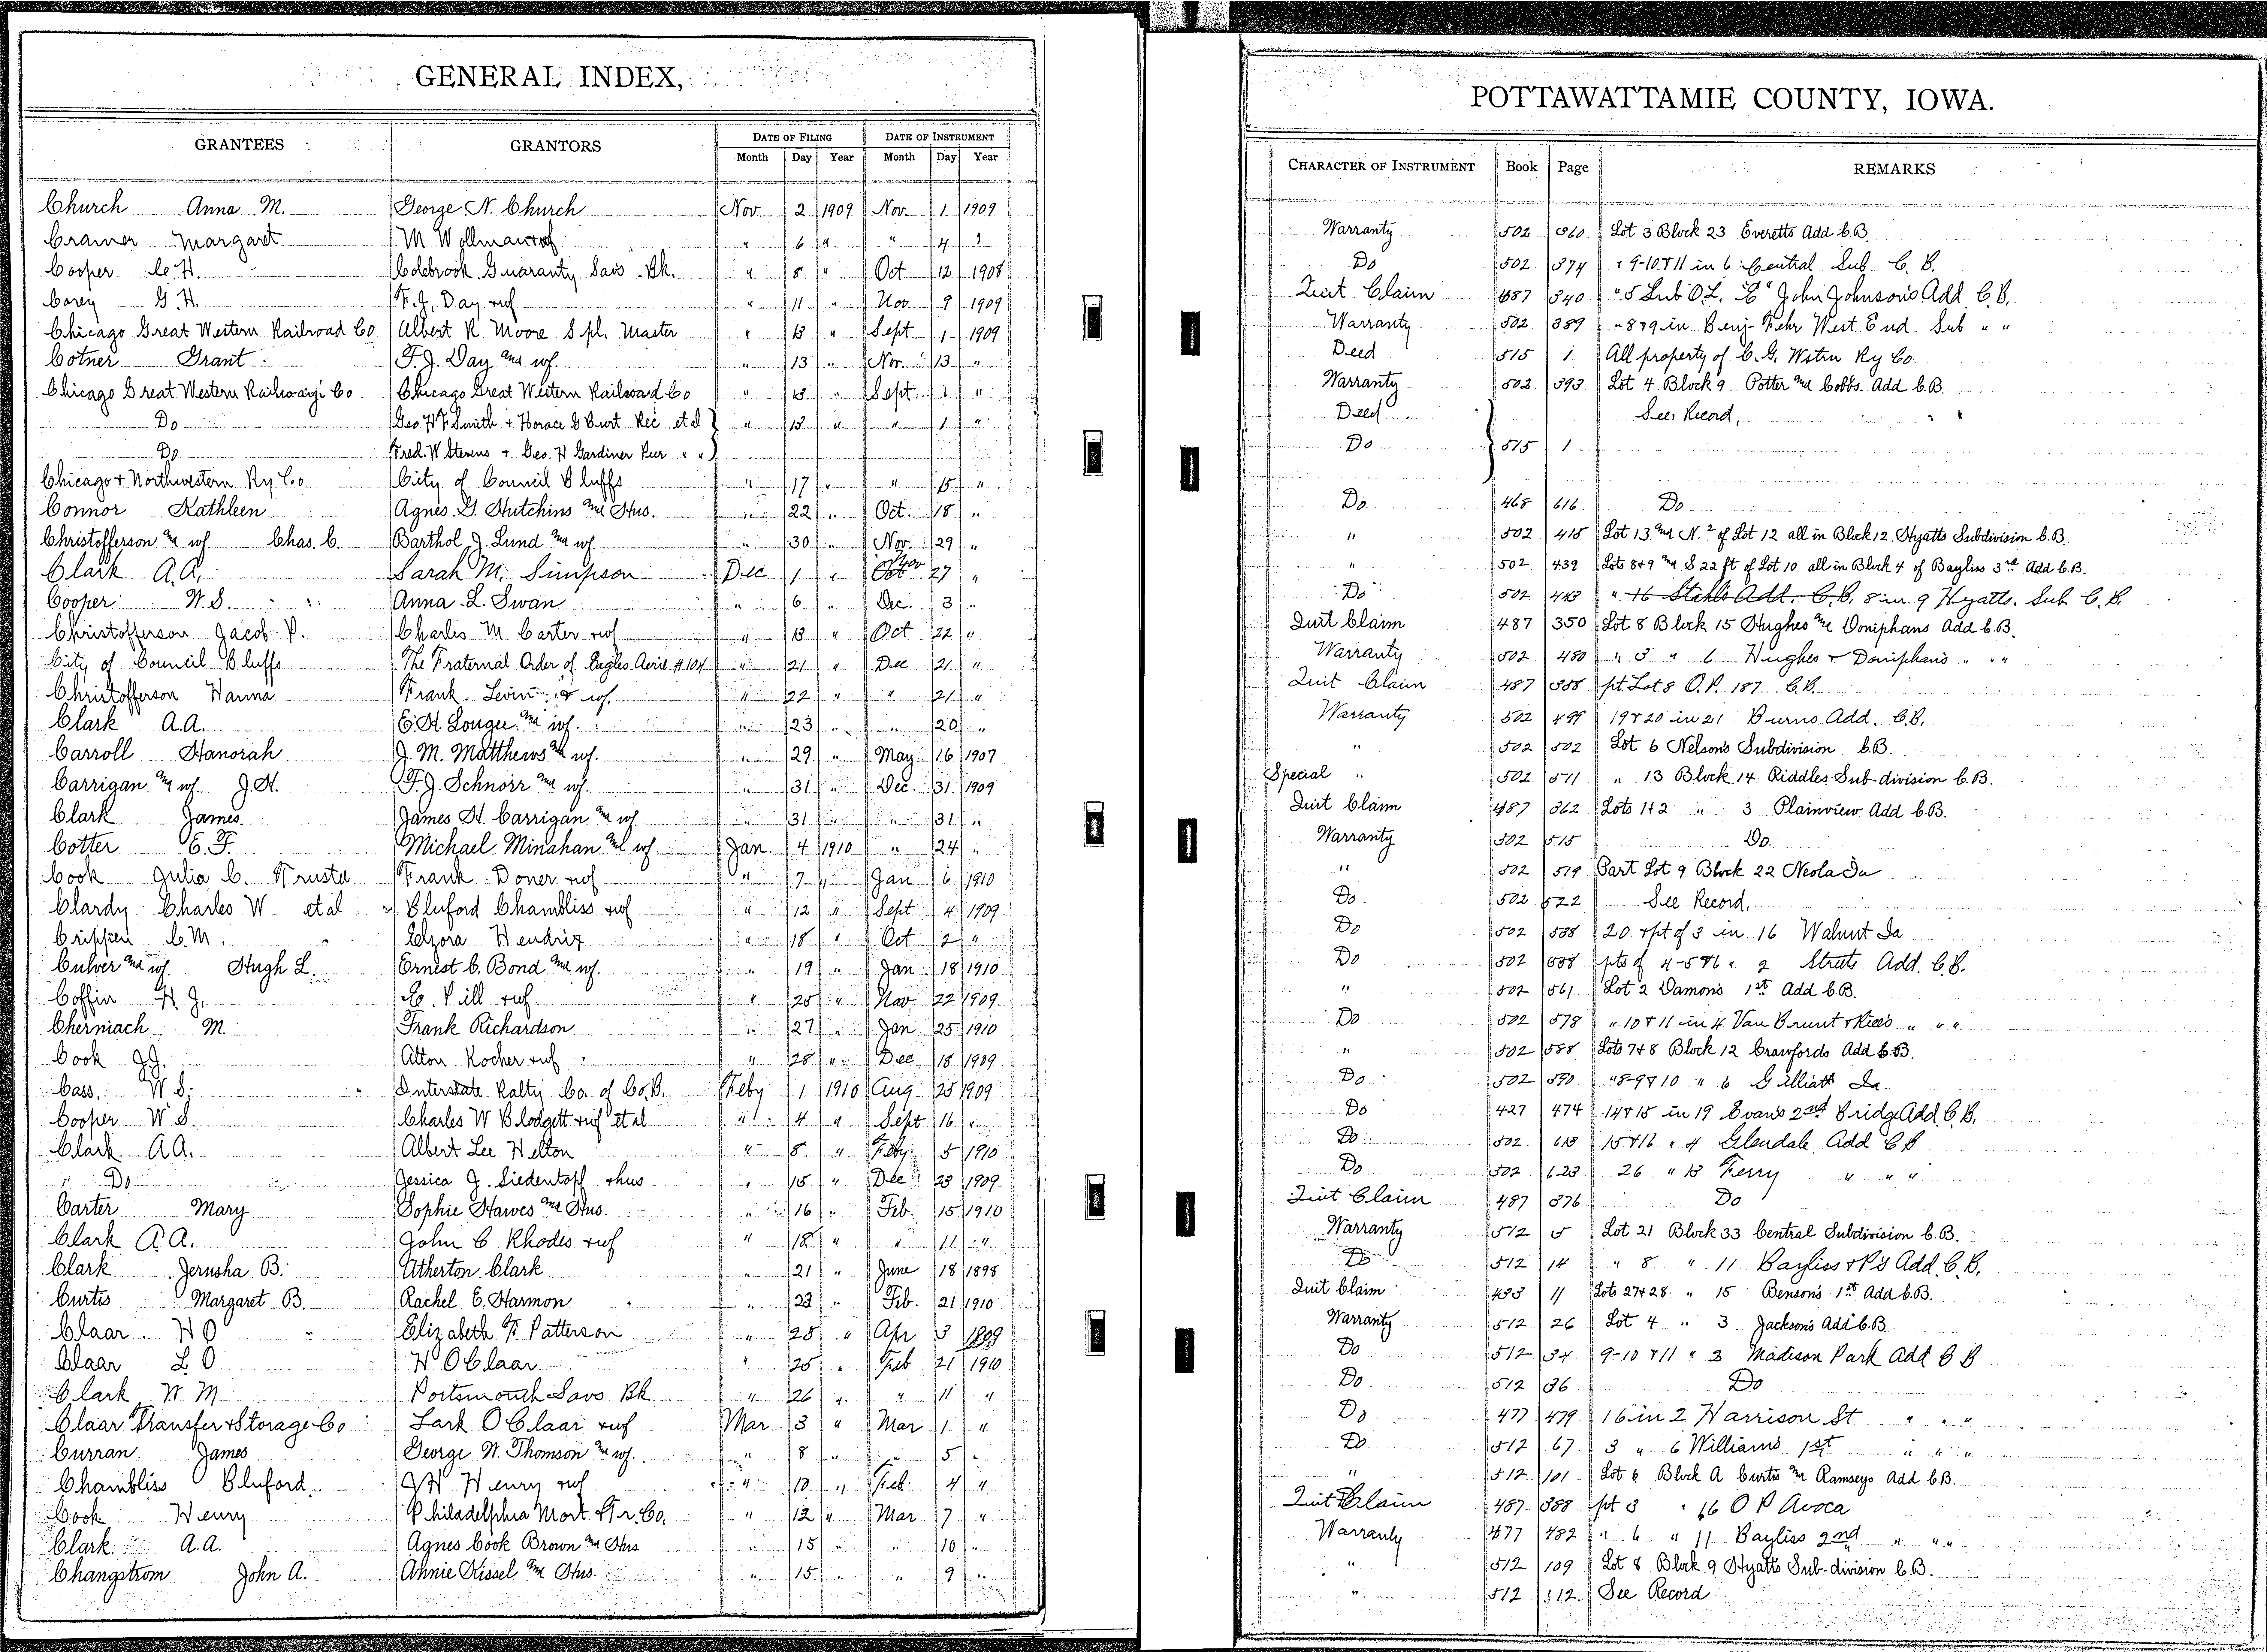 GENERAL INDEX,
GRANTEES GRANTORS DATE OF FILING DATE OF INSTRUMENT
Month Day Year Month Day Year
Church Anna M. George N. Church Nov 2 1909 Nov 1 1909
Cramer Margaret M Wollman & wf " 6 " " 4 "
Cooper C. H. Colebrook Guaranty Savs Bk. " 8 " Oct 12 1908
Corey G. H. F. J. Day & wf " 11 " Nov 9 1909
Chicago Great Western Railroad Co Albert R Moore Spl. Master " 13 " Sept 1 1909
Cotner Grant F. J. Day and wf " 13 " Nov 13 "
Chicago Great Western Railway Co Chicago Great Western Railroad Co " 13 " Sept 1 "
Do Geo H F Smith + Horace G Burt Rec et al " 13 " " 1 "
Do Fred. W Stevens + Geo. H Gardiner Pur " "
Chicago + Northwestern Ry. Co City of Council Bluffs " 17 " " 15 "
Connor Kathleen Agnes G. Hutchins and Hus. " 22 " Oct. 18 "
Christofferson and wf Chas. C. Barthol J. Lund and wf " 30 " Nov. 29 "
Clark A. A. Sarah M. Simpson Dec 1 " Nov 27 "
Cooper W. S. Anna L. Swan " 6 " Dec. 3 "
Christofferson Jacob P. Charles M Carter & wf " 13 " Oct 22 "
City of Council Bluffs The Fraternal Order of Eagles Aerie #104 " 21 " Dec 21 "
Christofferson Hanna Frank Levin & wf. " 22 " " 21 "
Clark A.A. E. H. Lougee and wf. " 23 " " 20 "
Carroll Hanorah J. M. Matthews and wf. " 29 " May 16 1907
Carrigan and wf J. H. F. J. Schnorr and wf. " 31 " Dec. 31 1909
Clark James James H. Carrigan and wf " 31 " " 31 "
Cotter E. F. Michael Minahan and wf. Jan 4 1910 " 24 "
Cook Julia C. Trustee Frank Doner & wf " 7 " Jan 6 1910
Clardy Charles W et al Bluford Chambliss & wf " 12 " Sept 4 1909
Crippen C. M. Elzora Hendrix " 18 " Oct 2 "
Culver and wf. Hugh L. Ernest C. Bond and wf. " 19 " Jan 18 1910
Coffin H. J. E. Pill & wf " 25 " Nov 22 1909
Cherniach M. Frank Richardson " 27 " Jan 25 1910
Cook J.J. Alton Kocher & wf " 28 " Dec 18 1909
Cass. W S. Interstate Ralty Co. of Co. B. Feby 1 1910 Aug 25 1909
Cooper W S Charles W Blodgett & wf et al " 4 " Sept 16 "
Clark A A. Albert Lee Helton " 8 " Feby 5 1910
Do Jessica J. Siedentopf & hus " 15 " Dec 23 1909
Carter Mary Sophie Hawes and Hus. " 16 " Feb. 15 1910
Clark A. A. John C Rhodes & wf " 18 " " 11 "
Clark Jerusha B. Atherton Clark " 21 " June 18 1898
Curtis Margaret B. Rachel E. Harmon " 23 " Feb. 21 1910
Claar H O Elizabeth F. Patterson " 25 " Apr 3 1909
Claar L O H O Claar " 25 " Feb 21 1910
Clark W M Portsmouth Savs Bk " 26 " " 11 "
Claar Transfer & Storage Co Lark O Claar & wf Mar 3 " Mar 1 "
Curran James George W. Thomson and wf. " 8 " " 5 "
Chambliss Bluford J W Henry & wf " 10 " Feb 4 "
Cook Henry Philadelphia Mort & Tr. Co. " 12 " Mar 7 "
Clark A.A. Agnes Cook Brown and Hus " 15 " " 10 "
Changstrom John A. Annie Kissel and Hus. " 15 " " 9 "
POTTAWATTAMIE COUNTY, IOWA.
CHARACTER OF INSTRUMENT Book Page REMARKS
Warranty 502 360 Lot 3 Block 23 Everetts Add C.B.
Do 502 374 " 9-10 & 11 in 6 Central Sub C. B.
Quit Claim 487 340 " 5 Sub O.L. "E" John Johnson's Add C.B.
Warranty 502 389 " 8 & 9 in Benj Fehr West End Sub " "
Deed 515 1 All property of C. G. Wstrn Ry Co.
Warranty 502 393 Lot 4 Block 9 Potter and Cobbs Add C.B.
Deed See Record,
Do 515 1
Do 468 616 Do
" 502 415 Lot 13 and N.2 of Lot 12 all in Block 12 Hyatts Subdivision C.B.
" 502 439 Lots 8+9 and S 22 ft of Lot 10 all in Block 4 of Bayliss 3rd Add C.B.
Do 502 443 " 16 Stahls Add. C.B. 8 in 9 Hyatts. Sub C. B.
Quit Claim 487 350 Lot 8 Block 15 Hughes and Doniphans Add C.B.
Warranty 502 480 " 3 " 6 Hughes & Doniphans " " "
Quit Claim 487 358 pt. Lot 8 O.P. 187 C.B.
Warranty 502 499 19 & 20 in 21 Burns Add. C.B.
" 502 502 Lot 6 Nelson's Subdivision C.B.
Special " 502 511 " 13 Block 14 Riddles Sub-division C.B.
Quit Claim 487 362 Lots 1+2 " 3 Plainview Add C.B.
Warranty 502 515 Do.
" 502 519 Part Lot 9 Block 22 Neola Ia
Do 502 522 See Record,
Do 502 538 20 & pt of 3 in 16 Walnut Ia
Do 502 538 pts of 4-5 & 6 " 2 Struts Add. C.B.
" 502 561 Lot 2 Damon's 1st Add C.B.
Do 502 578 " 10 & 11 in 4 Van Brunt & Rices " " "
" 502 588 Lots 7+8 Block 12 Crawfords Add C.B.
Do 502 590 " 8-9 & 10 " 6 Gilliatt Ia
Do 427 474 14 & 15 in 19 Evans 2nd Bridge Add C.B.
Do 502 613 15 & 16 " 4 Glendale Add C B
Do 502 623 26 " 13 Ferry " " "
Quit Claim 487 376 Do
Warranty 512 5 Lot 21 Block 33 Central Subdivision C.B.
Do 512 14 " 8 " 11 Bayliss & P's Add. C.B.
Quit Claim 493 11 Lots 27+28 " 15 Benson's 1st Add C.B.
Warranty 512 26 Lot 4 " 3 Jackson's Add C.B.
Do 512 34 9-10 & 11 " 3 Madison Park Add C B
Do 512 36 Do
Do 477 479 16 in 2 Harrison St " " "
Do 512 67 3 " 6 Williams 1st " " "
" 512 101 Lot 6 Block A Curtis and Ramseys Add C.B.
Quit Claim 487 388 pt 3 " 16 O P Avoca
Warranty 477 482 " 6 " 11 Bayliss 2nd " " "
" 512 109 Lot 8 Block 9 Hyatts Sub-division C.B.
" 512 112 See Record